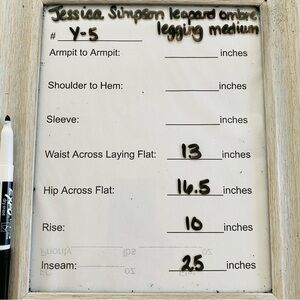 Jessica Simpson leopard ombre
# Y-5 legging medium
Armpit to Armpit: inches
Shoulder to Hem: inches
Sleeve: inches
Waist Across Laying Flat: 13 inches
Hip Across Flat: 16.5 inches
Rise: 10 inches
Inseam: 25 inches